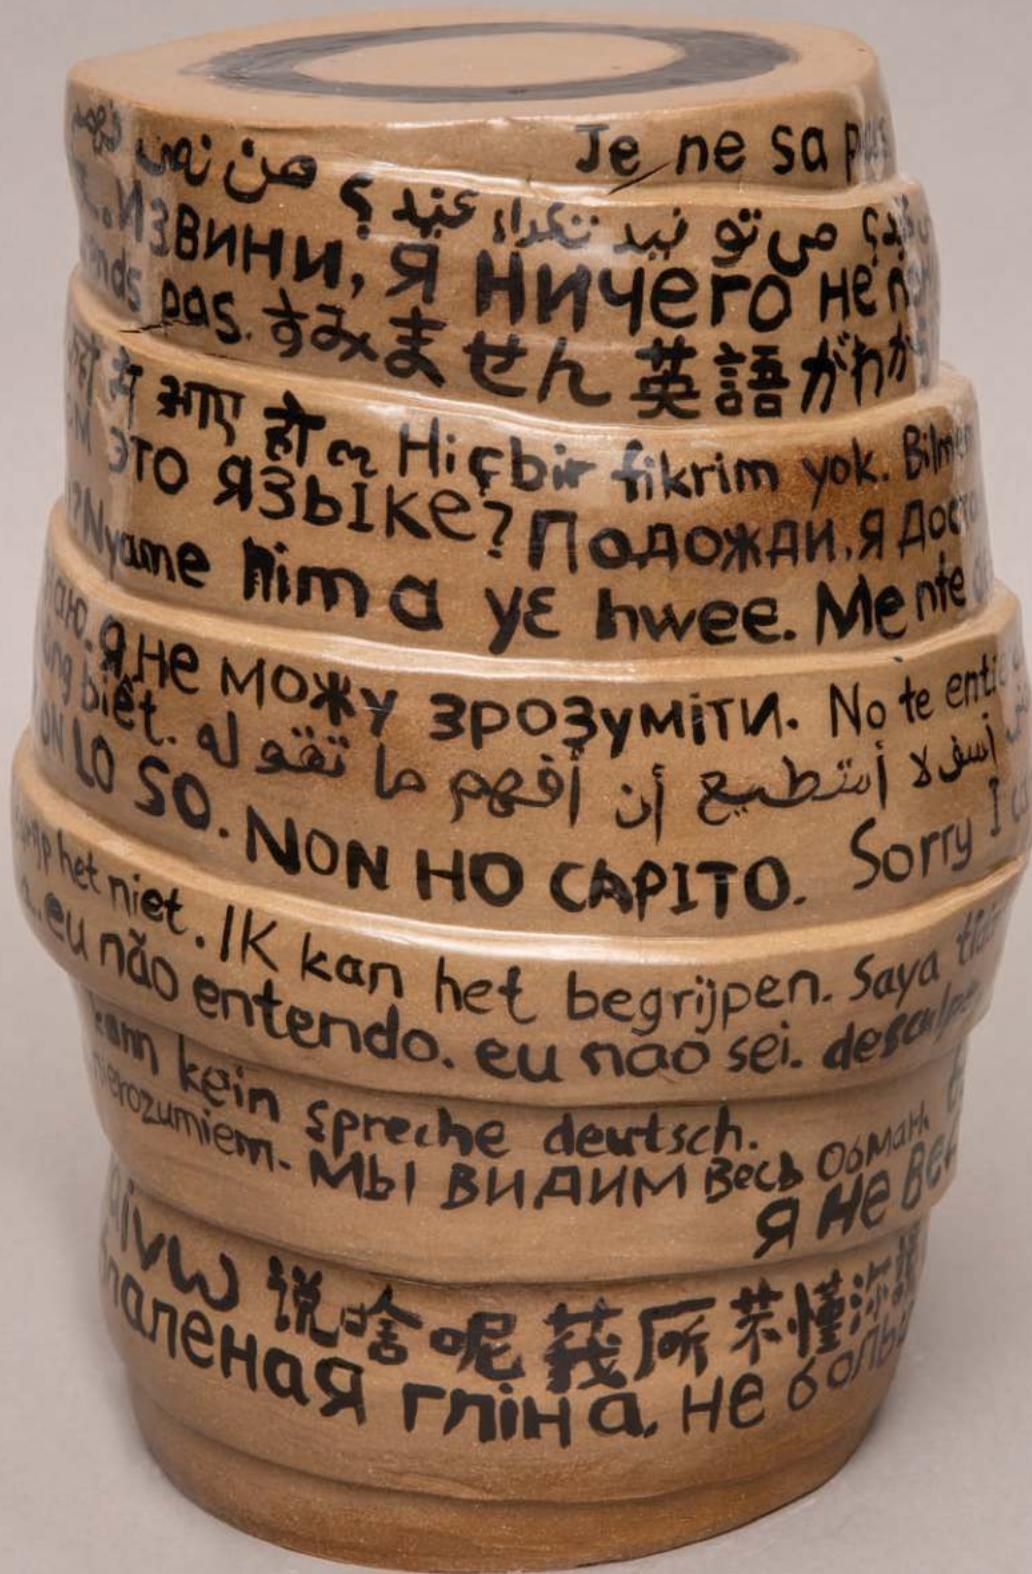 Je ne sa pas
من نمی
می تو نید تکرار کنید؟
. Извини, я ничего не
pas. すみません 英語がわか
Hiçbir fikrim yok. Bilm
это языке? Подожди. Я Дост
?Nyame nim a yɛ hwee. Me nte
Я не можу зрозуміти. No te enti
biết. أسف لا أستطيع أن أفهم ما تقوله
ON LO SO. NON HO CAPITO. Sorry I c
het niet. IK kan het begrijpen. Saya
eu não entendo. eu não sei. desculpe
kann kein spreche deutsch.
nierozumiem. Мы видим Весь Обман.
Я не Ве
说啥呢 莪
паленая гліна. не боль